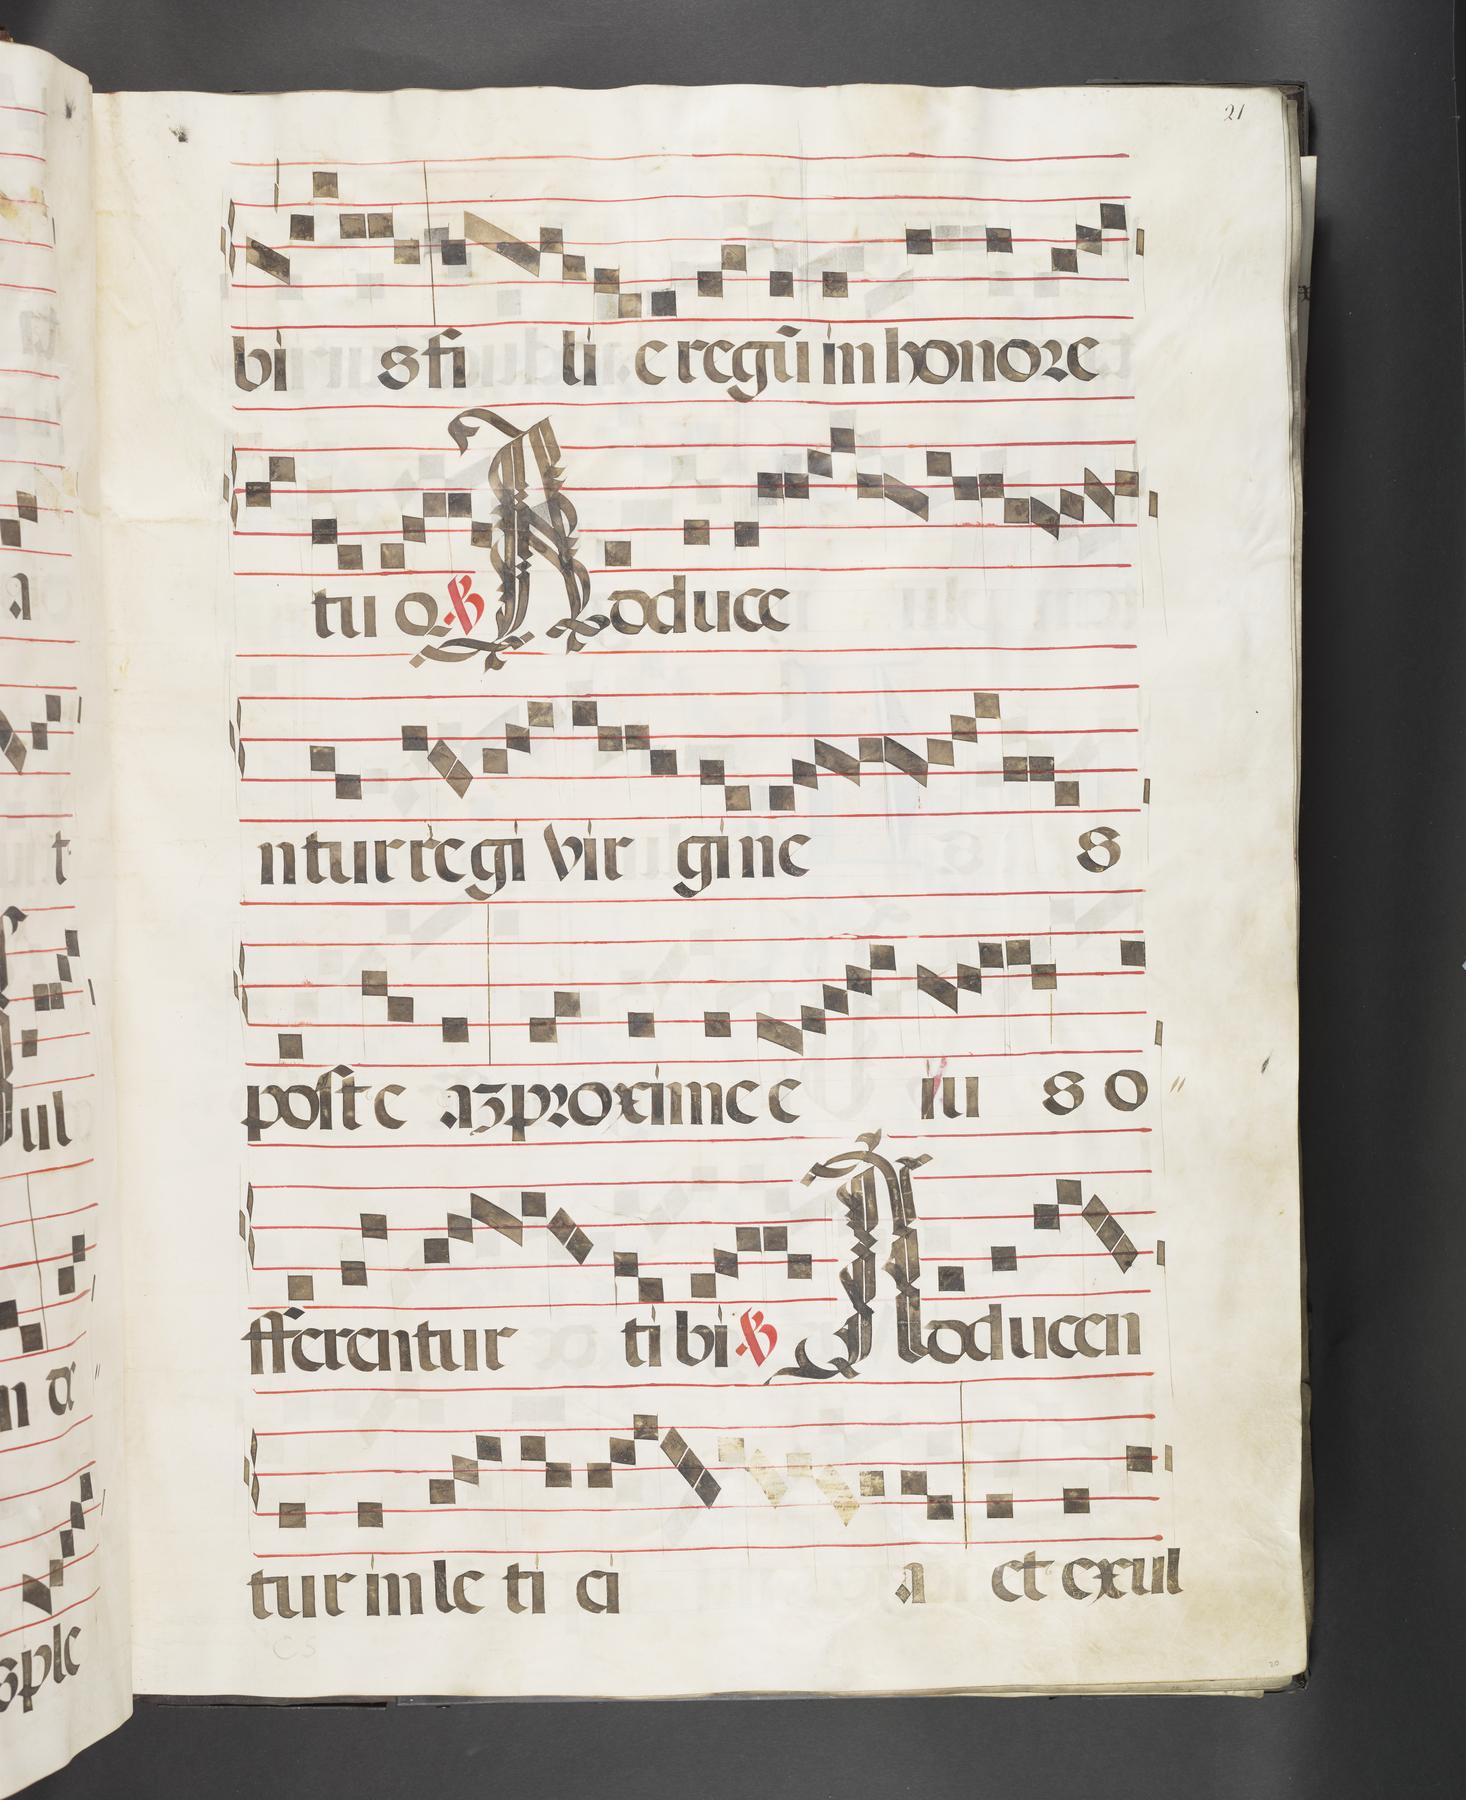 21
bi s fi li e regũ in honore
tu o ℣ Aduce
ntur regi vir gine s
post e aʒ proxime e iu s o
fferentur ti bi ℣ Aducen
tur in le ti ci a et exul
CS
20
a
t
ul
n
sple